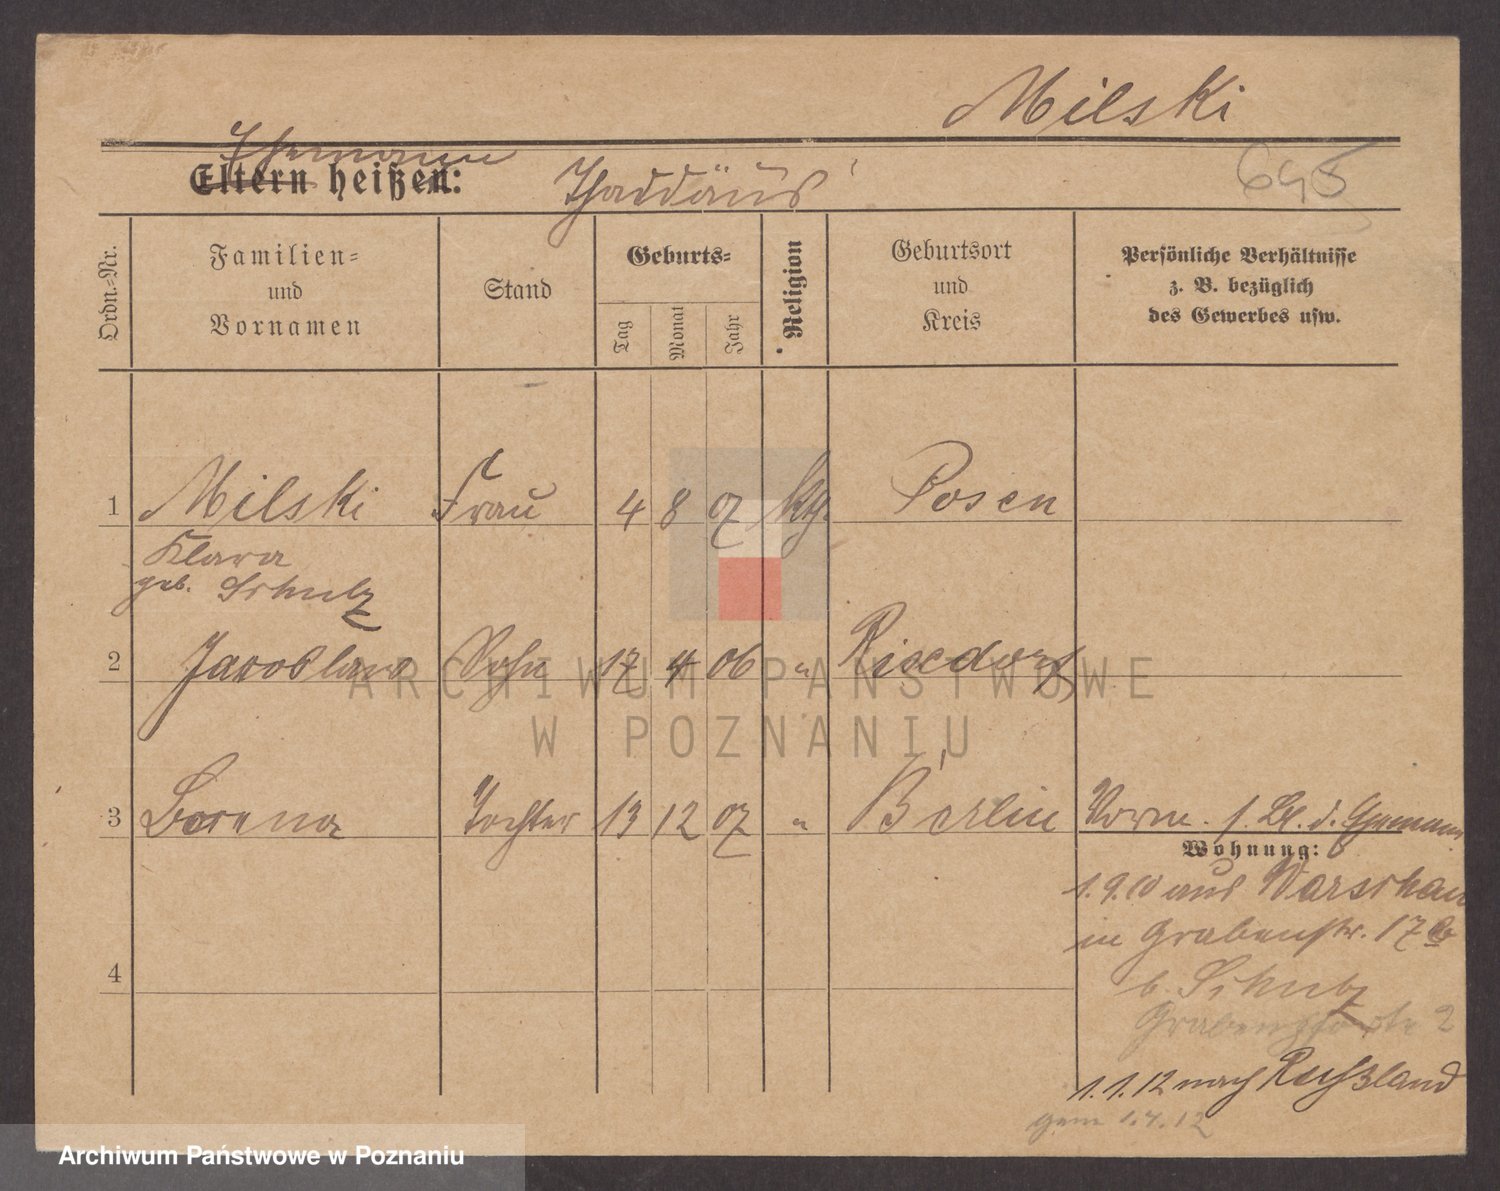 Milski
Ehemann
Eltern heißen: Thaddäus
695
Ordn.-Nr.
Familien-
und
Vornamen
Stand
Geburts-
Tag
Monat
Jahr
Religion
Geburtsort
und
Kreis
Persönliche Verhältnisse
z. B. bezüglich
des Gewerbes usw.
1 Milski Frau 4 8 07 kth. Posen
Klara
geb. Schulz
2 Jaroslaw Sohn 17 4 06 " Rixdorf
3 Sohn 13 12 07 " Berlin
Tochter
Vorm. s. Bl. d. Ehemann
Wohnung:
1.9.10 aus Warschau
in Grabenstr. 17b
b. Schulz
2
4
1.1.12 nach Rußland
1.4.12
ARCHIWUM PAŃSTWOWE
W POZNANIU
Archiwum Państwowe w Poznaniu